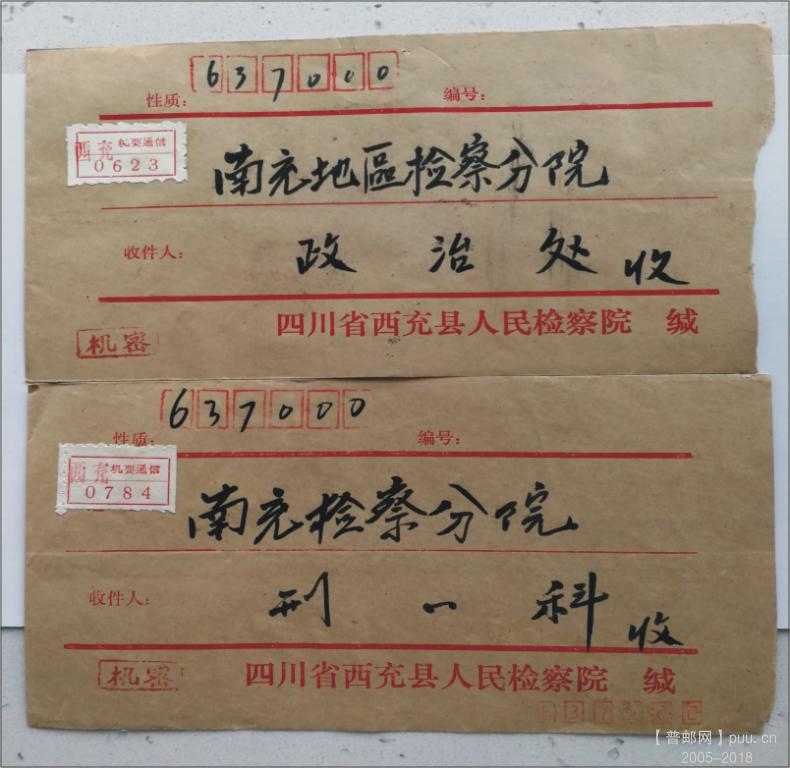 637000
性质： 编号：
西充 机要通信
0623
南充地區检察分院
收件人： 政治处 收
四川省西充县人民检察院 缄
机密
637000
性质： 编号：
西充 机要通信
0784
南充检察分院
收件人： 刑一科 收
四川省西充县人民检察院 缄
机密
【普邮网】puu.cn
2005-2018